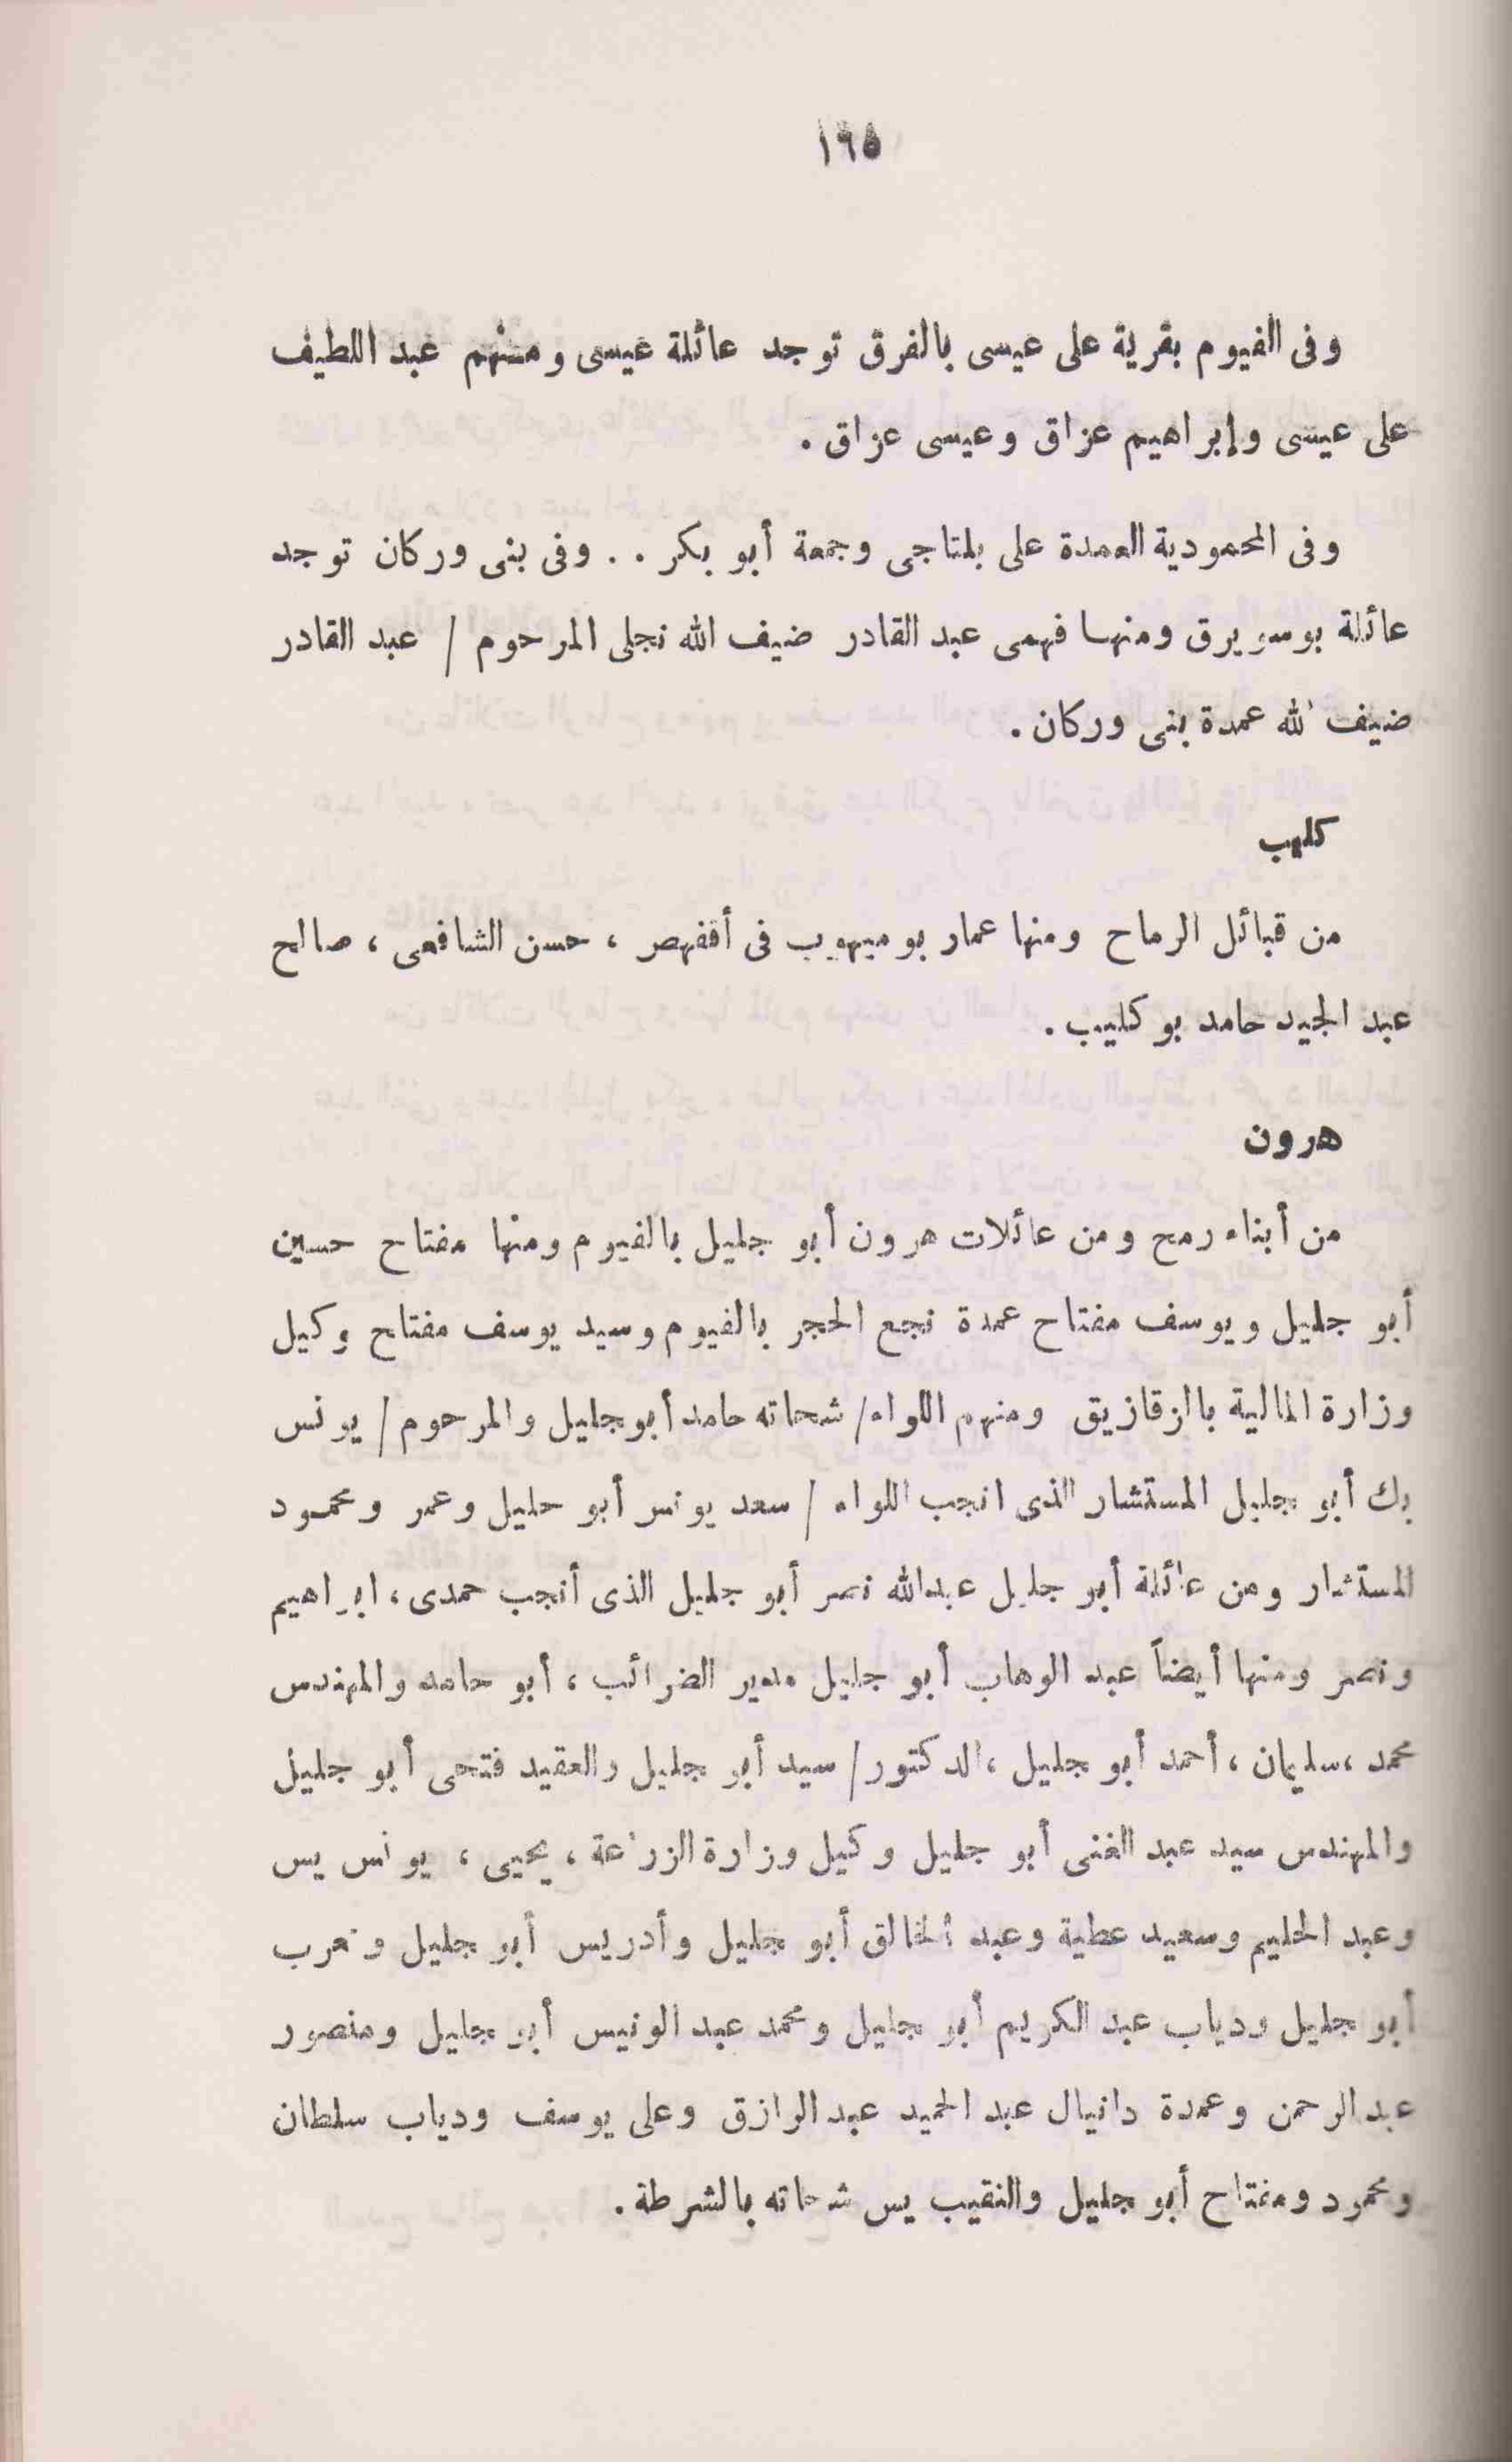 ١٦٥
وفى الفيوم بقرية على عيسى بالفرق توجد عائلة عيسى ومنهم عبد اللطيف
على عيسى وإبراهيم عزاق وعيسى عزاق .
وفى المحمودية العمدة على بلتاجى وجمعة أبو بكر . . وفى بنى وركان توجد
عائلة بوسويرق ومنها فهمى عبد القادر ضيف الله نجلى المرحوم / عبد القادر
ضيف الله عمدة بنى وركان .
كليب
من قبائل الرماح ومنها عمار بو ميهوب فى أقفهص ، حسن الشافعى ، صالح
عبد المجيد حامد بو كليب .
هرون
من أبناء رمح ومن عائلات هرون أبو جليل بالفيوم ومنها مفتاح حسين
أبو جليل ويوسف مفتاح عمدة نجع الحجر بالفيوم وسيد يوسف مفتاح وكيل
وزارة المالية بالزقازيق ومنهم اللواء/ شحاته حامد أبو جليل والمرحوم / يونس
بك أبو جليل المستشار الذى انجب اللواء / سعد يونس أبو حليل وعمر ومحمود
المستشار ومن عائلة أبو جليل عبدالله نصر أبو جليل الذى أنجب حمدى ، ابراهيم
ونصر ومنها أيضاً عبد الوهاب أبو جليل مدير الضرائب ، أبو حامد والمهندس
محمد ، سليمان ، أحمد أبو جليل ، الدكتور / سيد أبو جليل والعقيد فتحى أبو جليل
والمهندس سيد عبد الغنى أبو جليل وكيل وزارة الزراعة ، يحيى ، يونس يس
وعبد الحليم وسعيد عطية وعبد الخالق أبو جليل وأدريس أبو جليل و
أبو جليل ودياب عبد الكريم أبو جليل ومحمد عبد الونيس أبو جليل ومنصور
عبد الرحمن وعمدة دانيال عبد الحميد عبد الرازق وعلى يوسف ودياب سلطان
ومحمود ومفتاح أبو جليل والنقيب يس شحاته بالشرطة .